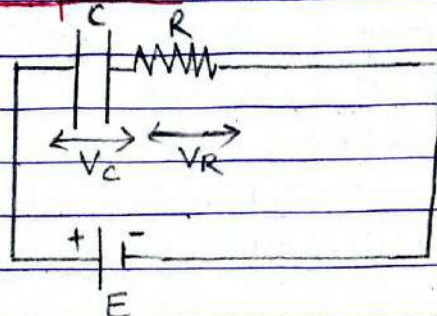 C R
Vc VR
+ -
E